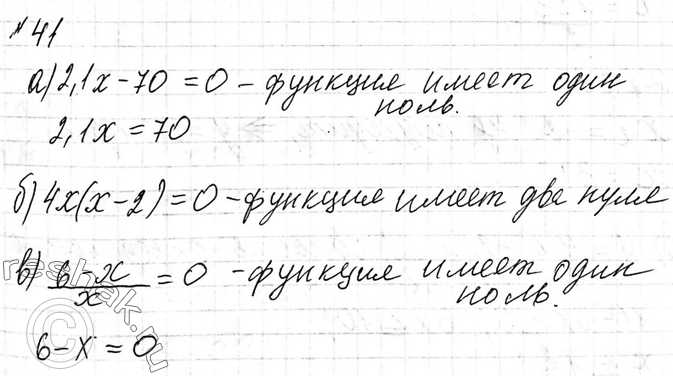 № 41
а) 2,1x - 70 = 0 - функция имеет один
ноль.
2,1x = 70
б) 4x(x - 2) = 0 - функция имеет два нуля
в) (6 - x)/x = 0 - функция имеет один
ноль.
6 - x = 0
©reshak.ru